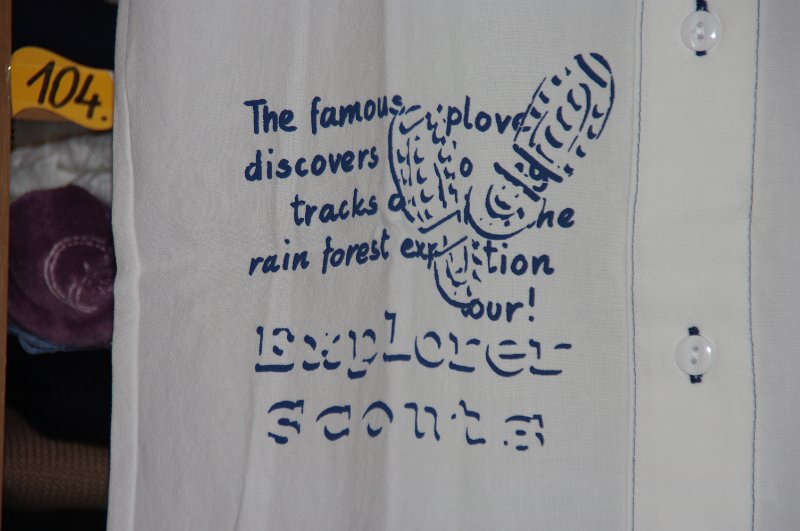 104.
The famous explore
discovers
tracks
rain forest expedition
tour!
Explorer
Scouts